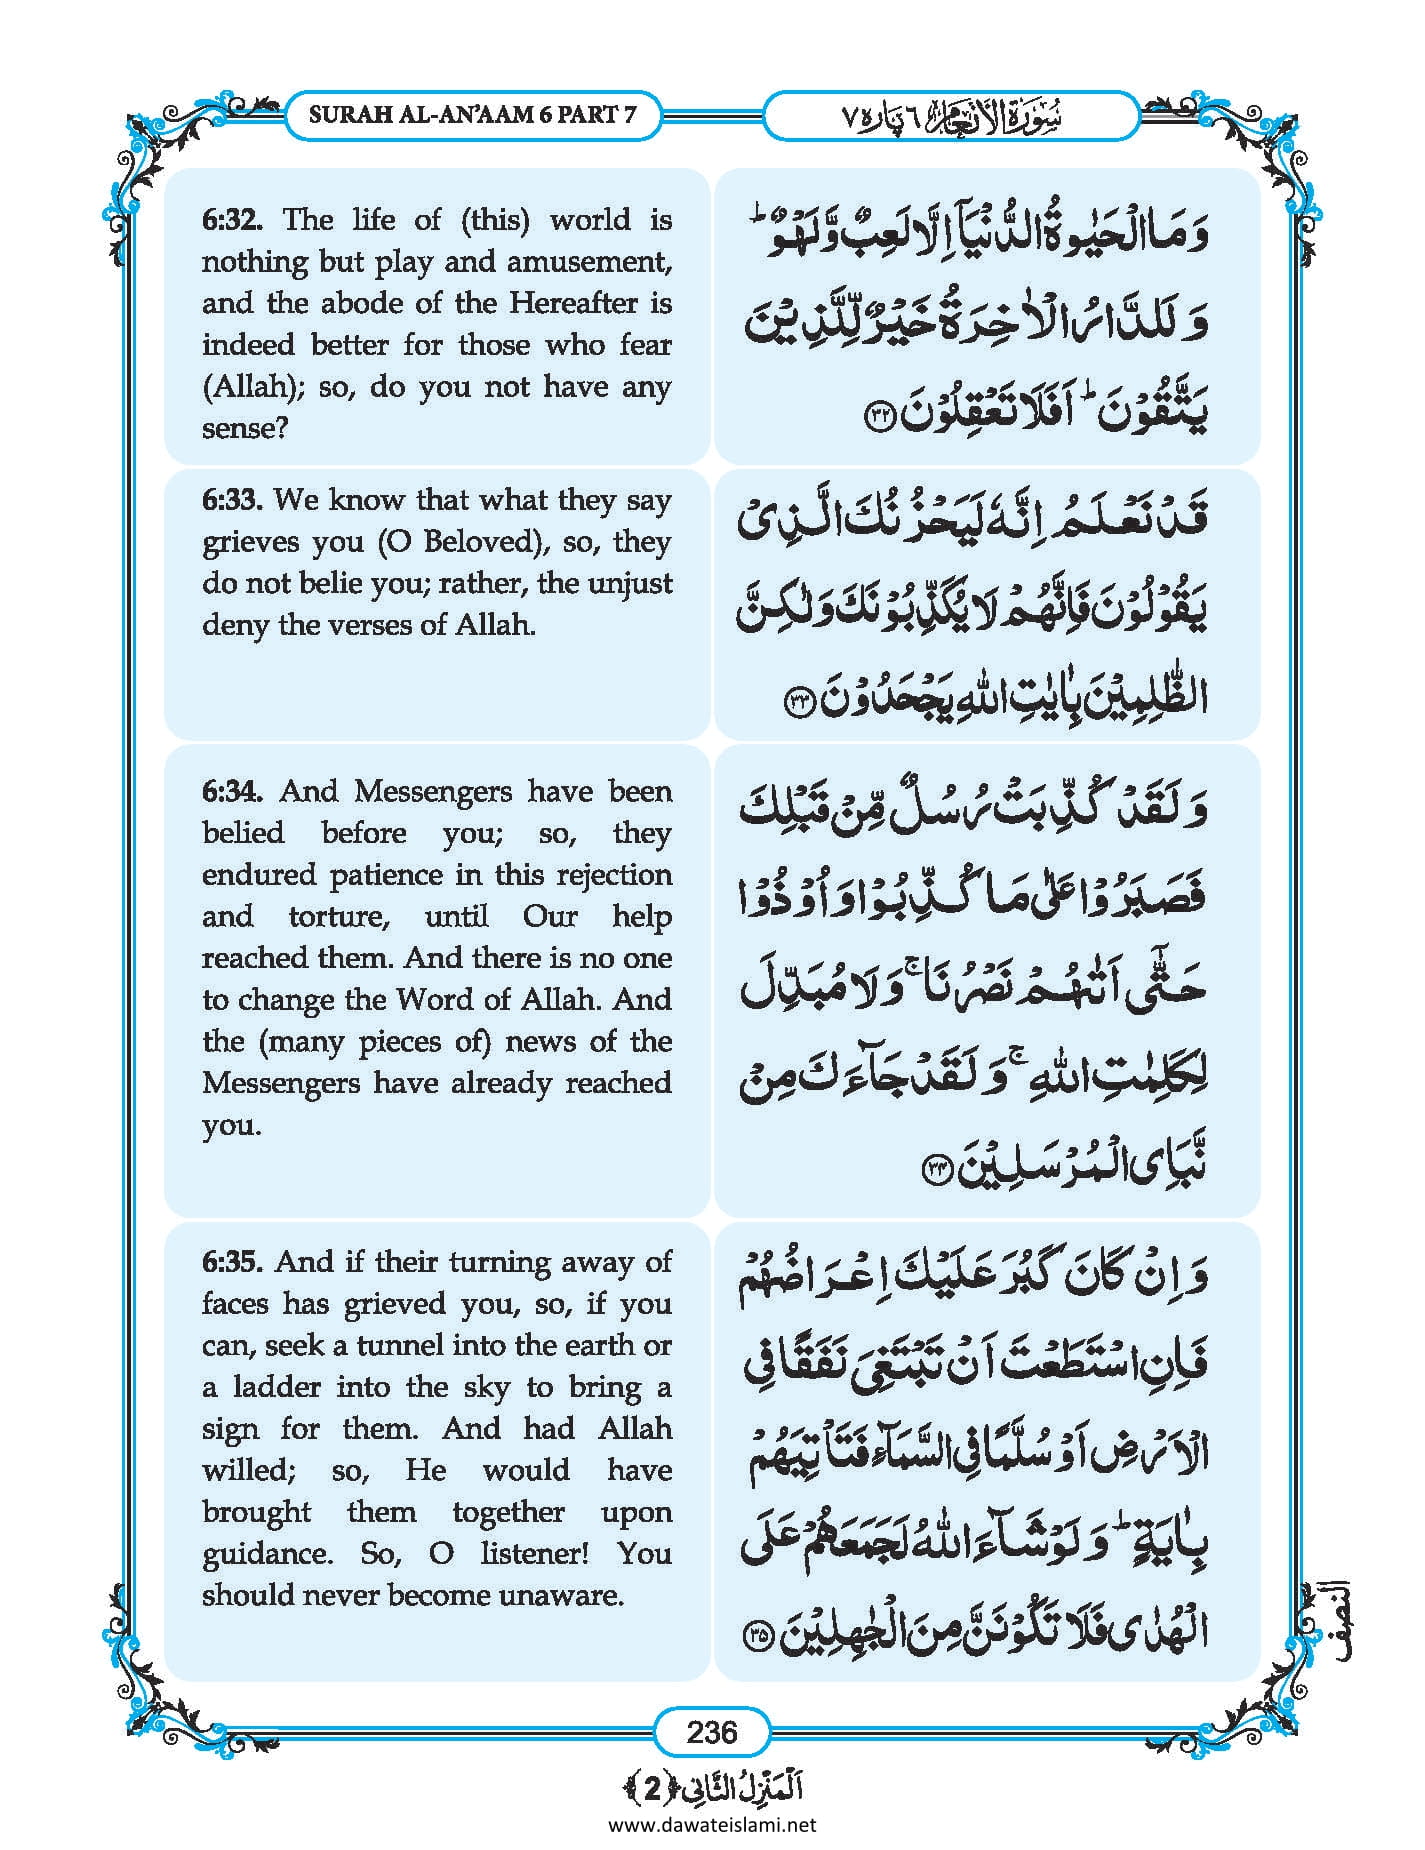 SURAH AL-AN’AAM 6 PART 7
سُوْرَةُ الْاَنْعَام ٦ پاره ٧
6:32. The life of (this) world is
nothing but play and amusement,
and the abode of the Hereafter is
indeed better for those who fear
(Allah); so, do you not have any
sense?
وَ مَا الْحَیٰوةُ الدُّنْیَاۤ اِلَّا لَعِبٌ وَّ لَهْوٌ ؕ
وَ لَلدَّارُ الْاٰخِرَةُ خَیْرٌ لِّلَّذِیْنَ
یَتَّقُوْنَ ؕ اَفَلَا تَعْقِلُوْنَ ﴿۳۲﴾
6:33. We know that what they say
grieves you (O Beloved), so, they
do not belie you; rather, the unjust
deny the verses of Allah.
قَدْ نَعْلَمُ اِنَّهٗ لَیَحْزُنُكَ الَّذِیْ
یَقُوْلُوْنَ فَاِنَّهُمْ لَا یُكَذِّبُوْنَكَ وَ لٰكِنَّ
الظّٰلِمِیْنَ بِاٰیٰتِ اللّٰهِ یَجْحَدُوْنَ ﴿۳۳﴾
6:34. And Messengers have been
belied before you; so, they
endured patience in this rejection
and torture, until Our help
reached them. And there is no one
to change the Word of Allah. And
the (many pieces of) news of the
Messengers have already reached
you.
وَ لَقَدْ كُذِّبَتْ رُسُلٌ مِّنْ قَبْلِكَ
فَصَبَرُوْا عَلٰى مَا كُذِّبُوْا وَ اُوْذُوْا
حَتّٰۤى اَتٰىهُمْ نَصْرُنَا ۚ وَ لَا مُبَدِّلَ
لِكَلِمٰتِ اللّٰهِ ۚ وَ لَقَدْ جَآءَكَ مِنْ
نَّبَاِى الْمُرْسَلِیْنَ ﴿۳۴﴾
6:35. And if their turning away of
faces has grieved you, so, if you
can, seek a tunnel into the earth or
a ladder into the sky to bring a
sign for them. And had Allah
willed; so, He would have
brought them together upon
guidance. So, O listener! You
should never become unaware.
وَ اِنْ كَانَ كَبُرَ عَلَیْكَ اِعْرَاضُهُمْ
فَاِنِ اسْتَطَعْتَ اَنْ تَبْتَغِیَ نَفَقًا فِی
الْاَرْضِ اَوْ سُلَّمًا فِی السَّمَآءِ فَتَاْتِیَهُمْ
بِاٰیَةٍ ؕ وَ لَوْ شَآءَ اللّٰهُ لَجَمَعَهُمْ عَلَى
الْهُدٰى فَلَا تَكُوْنَنَّ مِنَ الْجٰهِلِیْنَ ﴿۳۵﴾
النصف
236
اَلْمَنْزِلُ الثَّانِی ﴿2﴾
www.dawateislami.net